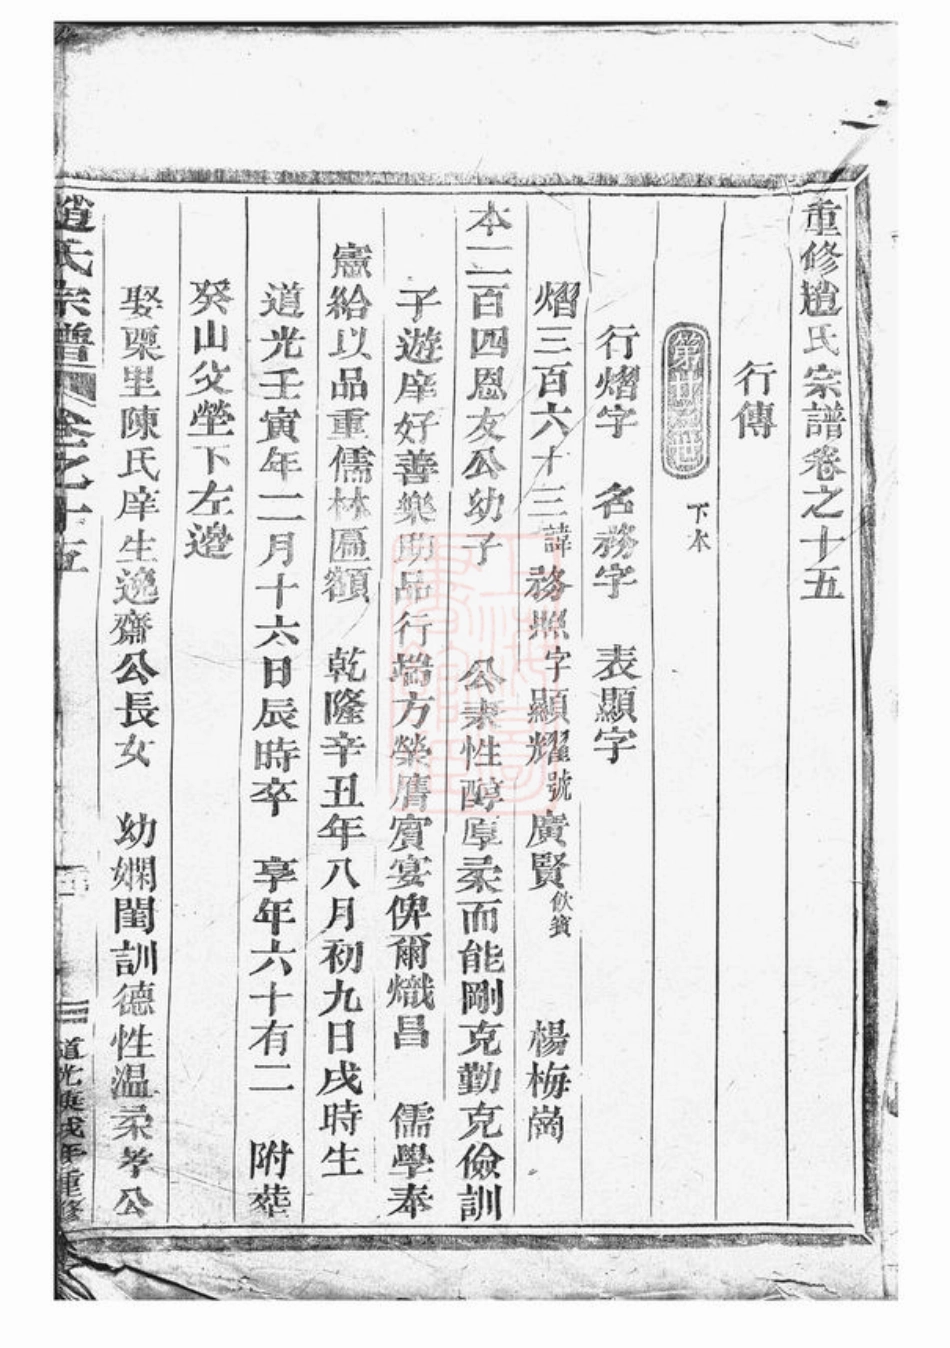 重修趙氏宗譜卷之十五
行傳
下本
行熠字 名務字 表顯字
熠三百六十三諱務照字顯耀號廣賢飲賓 楊梅崗
本二百四恩友公幼子 公素性醇厚柔而能剛克勤克儉訓
子遊庠好善樂助品行端方榮膺賓宴俾爾熾昌 儒學奉
憲給以品重儒林匾額 乾隆辛丑年八月初九日戌時生
道光壬寅年二月十六日辰時卒 享年六十有二 附葬
癸山父塋下左邊
娶栗里陳氏庠生逸齋公長女 幼嫻閨訓德性温柔孝公
趙氏宗譜 卷之十五 道光庚戌年重修